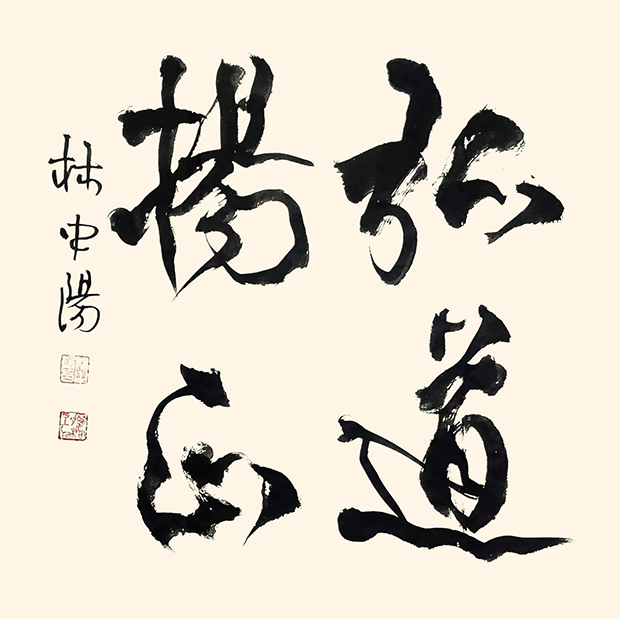 弘道
揚正
林中陽